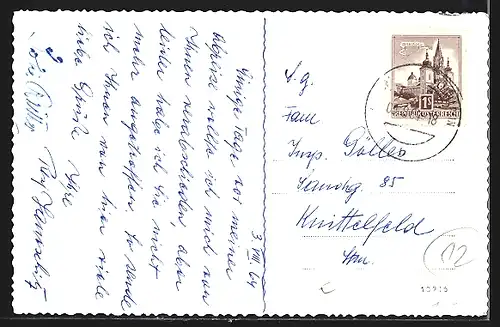 3. VIII 64
Einige Tage vor meiner
Abreise wollte ich mich von
Ihnen verabschieden, aber
leider habe ich Sie nicht
mehr angetroffen. So sende
ich Ihnen von hier viele
liebe Grüße Ihre
S. g.
Fam.
Insp. Goller
85
Knittelfeld
Stm.
12
1 S
REPUBLIK ÖSTERREICH